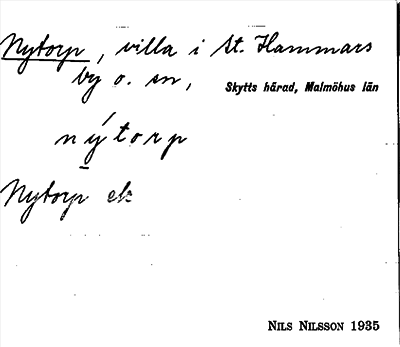 Nytorp, villa i St. Hammars
by o. sn,
Skytts härad, Malmöhus län
nýtorp
Nytorp ek
NILS NILSSON 1935